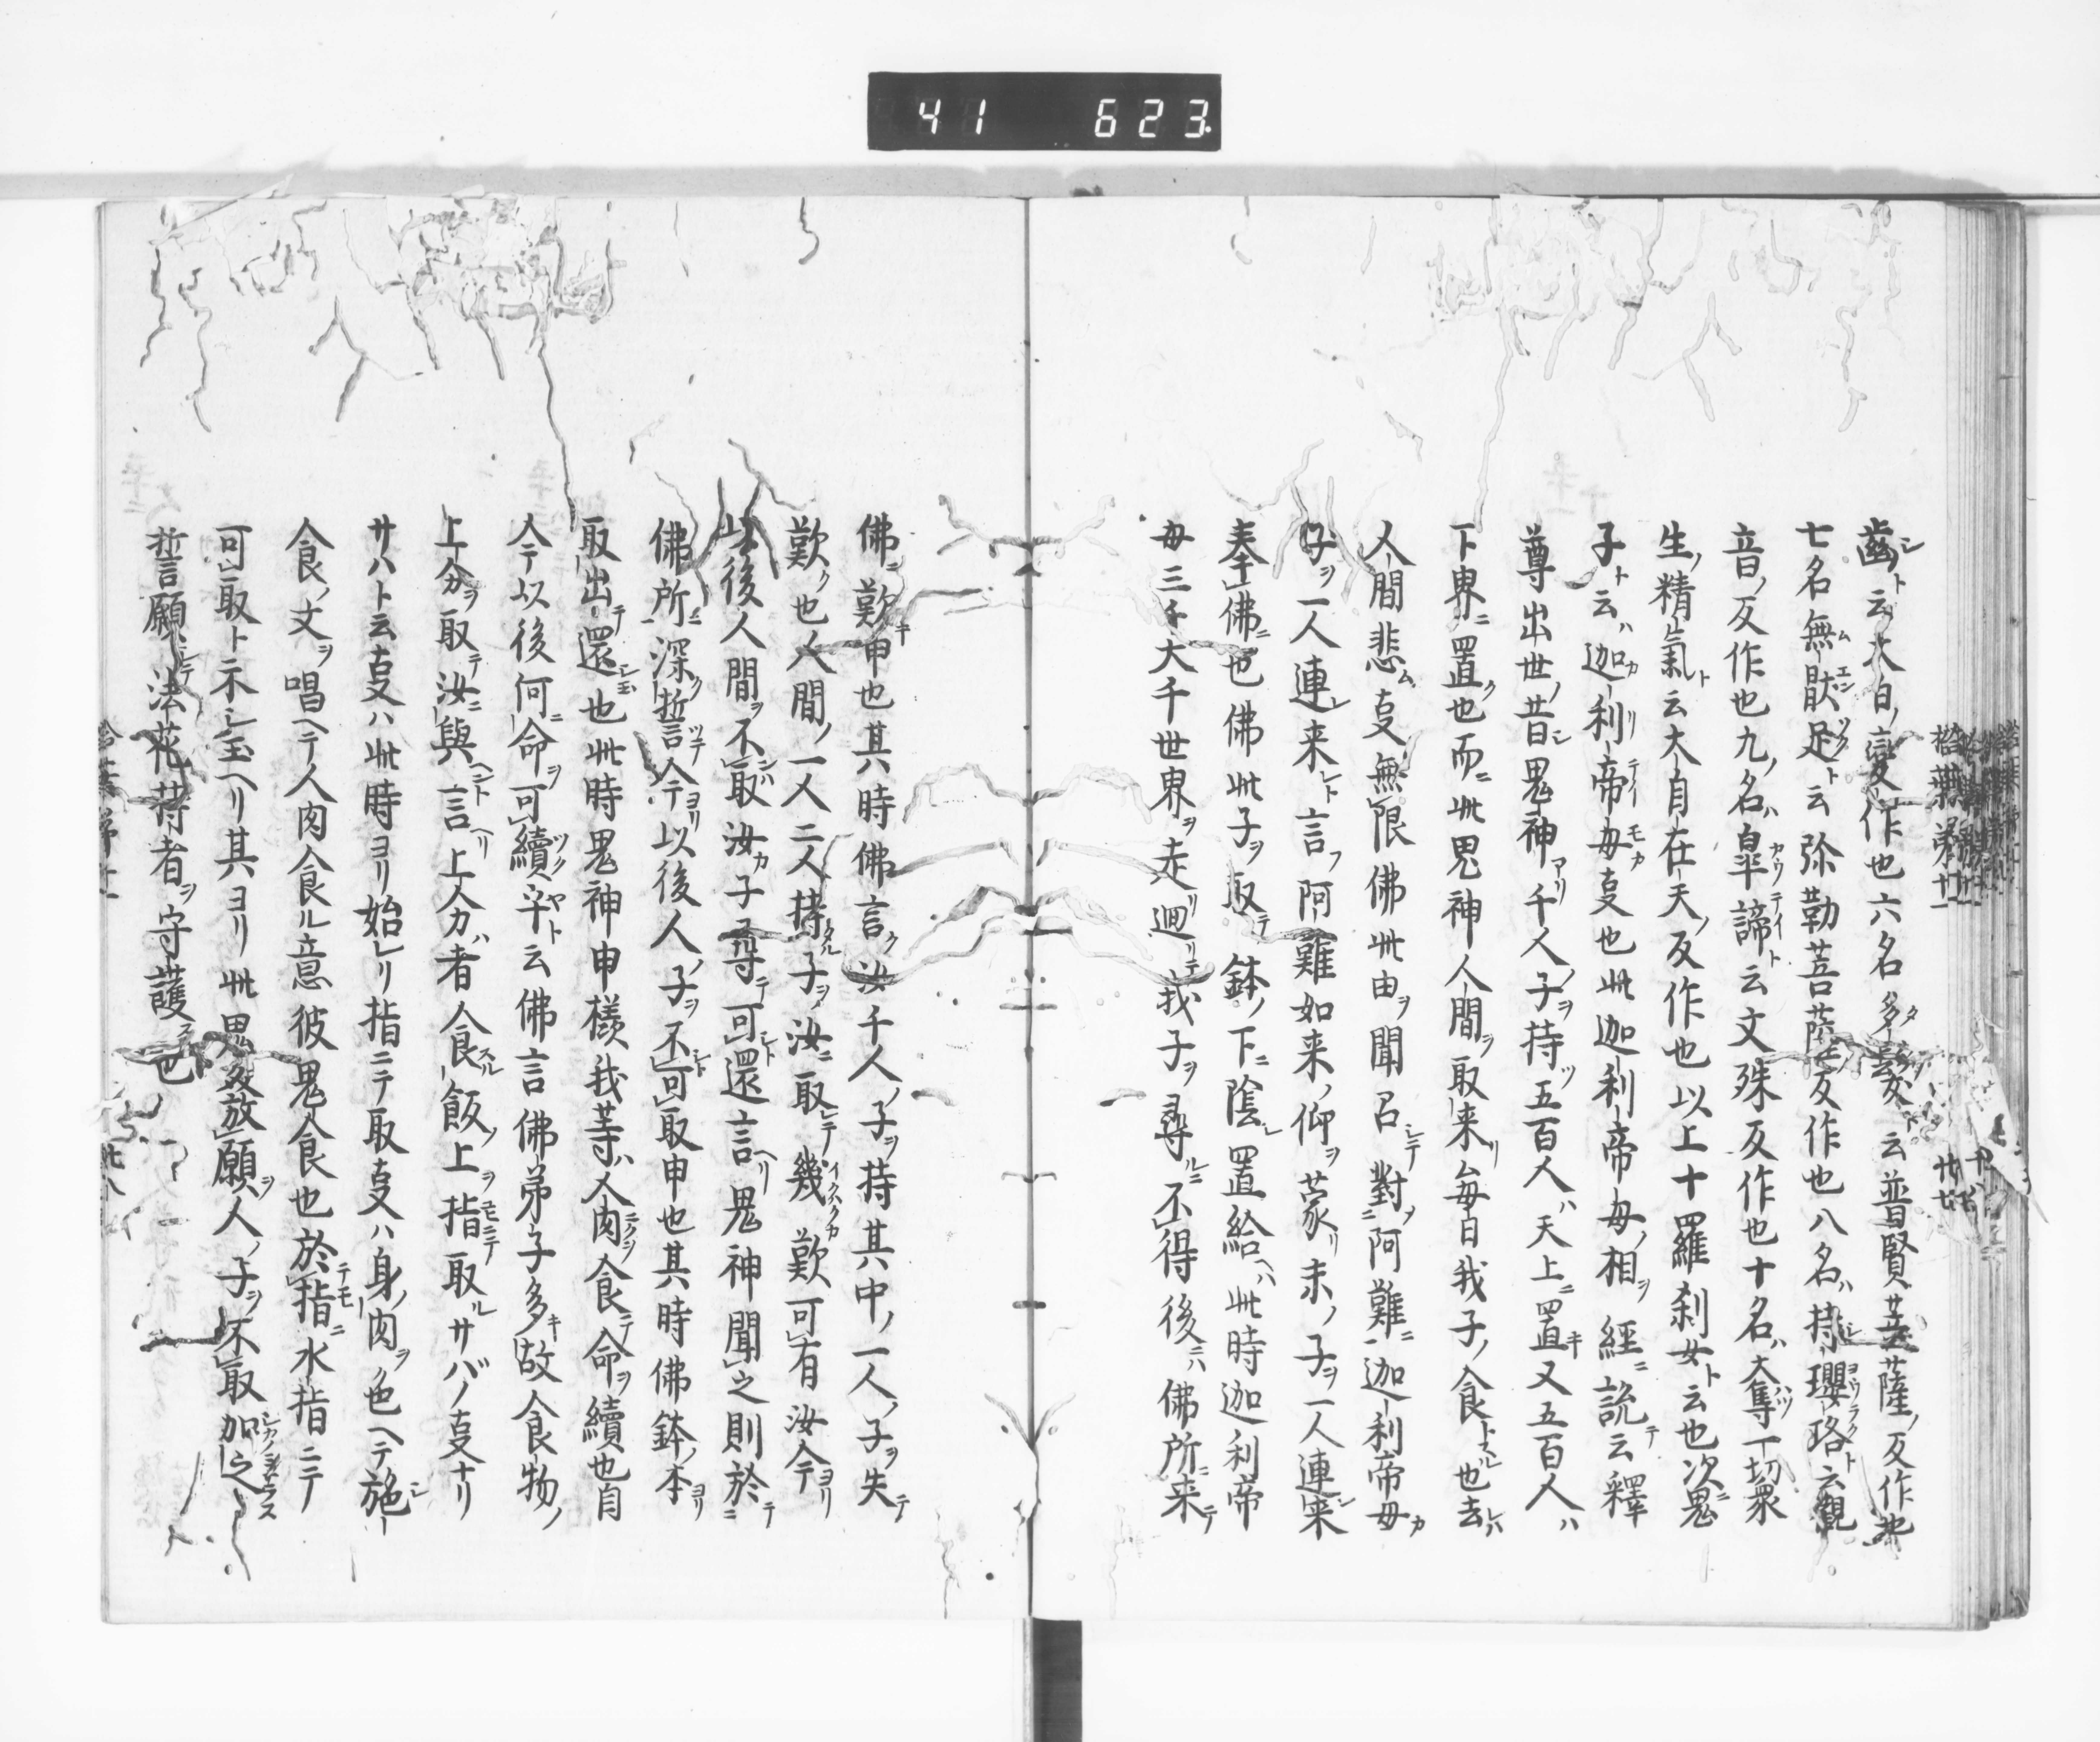 41 623
歯シト云ハ大白ノ変作也六名多髪ト云普賢菩薩ノ反作也
七名無ム猒エン足ソクト云弥勒菩薩ノ反作也八名ハ持瓔ヨウ珞ラクト云觀
音ノ反作也九ノ名ハ皐カウ諦テイト云文殊反作也十名ハ大奪一切衆
生ノ精氣ト云大自在天ノ反作也以上十羅刹女ト云也次ニ鬼
子ト云ハ迦カ利リ帝テイ母モカ夏也此迦利帝母ノ相ヲ經ニ説テ云釋
尊出世ノ昔シ鬼神アリ千人ノ子ヲ持ツ五百人ハ天上ニ置キ又五百人ハ
下界ニ置ク也而ニ此鬼神人間ヲ取来リ毎日我子ノ食トスル也去レハ
人間悲ム夏無限佛此由ヲ聞召シテ對ヲ阿難ニ迦利帝母カ
子ヲ一人連レ来レト言フ阿難如来ノ仰ヲ蒙リ末ノ子ヲ一人連シ来
奉佛ニ也佛此子ヲ取テ鉢ノ下ニ陰レ置給ヘハ此時迦利帝
母三千大千世界ヲ走リ廻リテ我子ヲ尋ルニ不得後ニハ佛所ニ来テ
佛ニ歎キ申也其時佛言ク汝千人ノ子ヲ持其中ノ一人ノ子ヲ失テ
歎ク也人間ノ一人二人持タル子ヲ汝ニ取レテ幾イクハクカ歎可有汝今ヨリ
此後人間ヲ不取ンハ汝カ子尋テ可還シト言ヘリ鬼神聞之則於テ
佛所ニ深ク誓ツテ今ヨリ以後人ノ子ヲ不可取シト申也其時佛鉢ノ本ヨリ
取出テ還シ玉也此時鬼神申樣我等ハ人肉ニクヲ食テ命ヲ續也自
今テ以後何ニ命ヲ可續ツク乎ヤト云佛言佛弟子多キ故食物ノ
上分ヲ取テ汝ニ與ヘント言ヘリ上分ハ者食スル飯ノ上ヲ指モニテ取ルサバノ夏ナリ
サハト云夏ハ此時ヨリ始レリ指ニテ取夏ハ身ノ肉ヲ色ヘテ施シ
食ノ文ヲ唱ヘテ人肉食ル意彼鬼食也於テモ指ニ水指ニテ
可取ト示シ玉ヘリ其ヨリ此鬼發放願ヲ人ノ子ヲ不取加之シカノミナラス
誓願シテ法花持者ヲ守護スル也